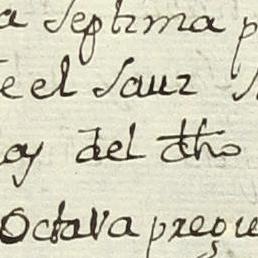 a Septima p
e el Sauz
del dho
Octava pregu